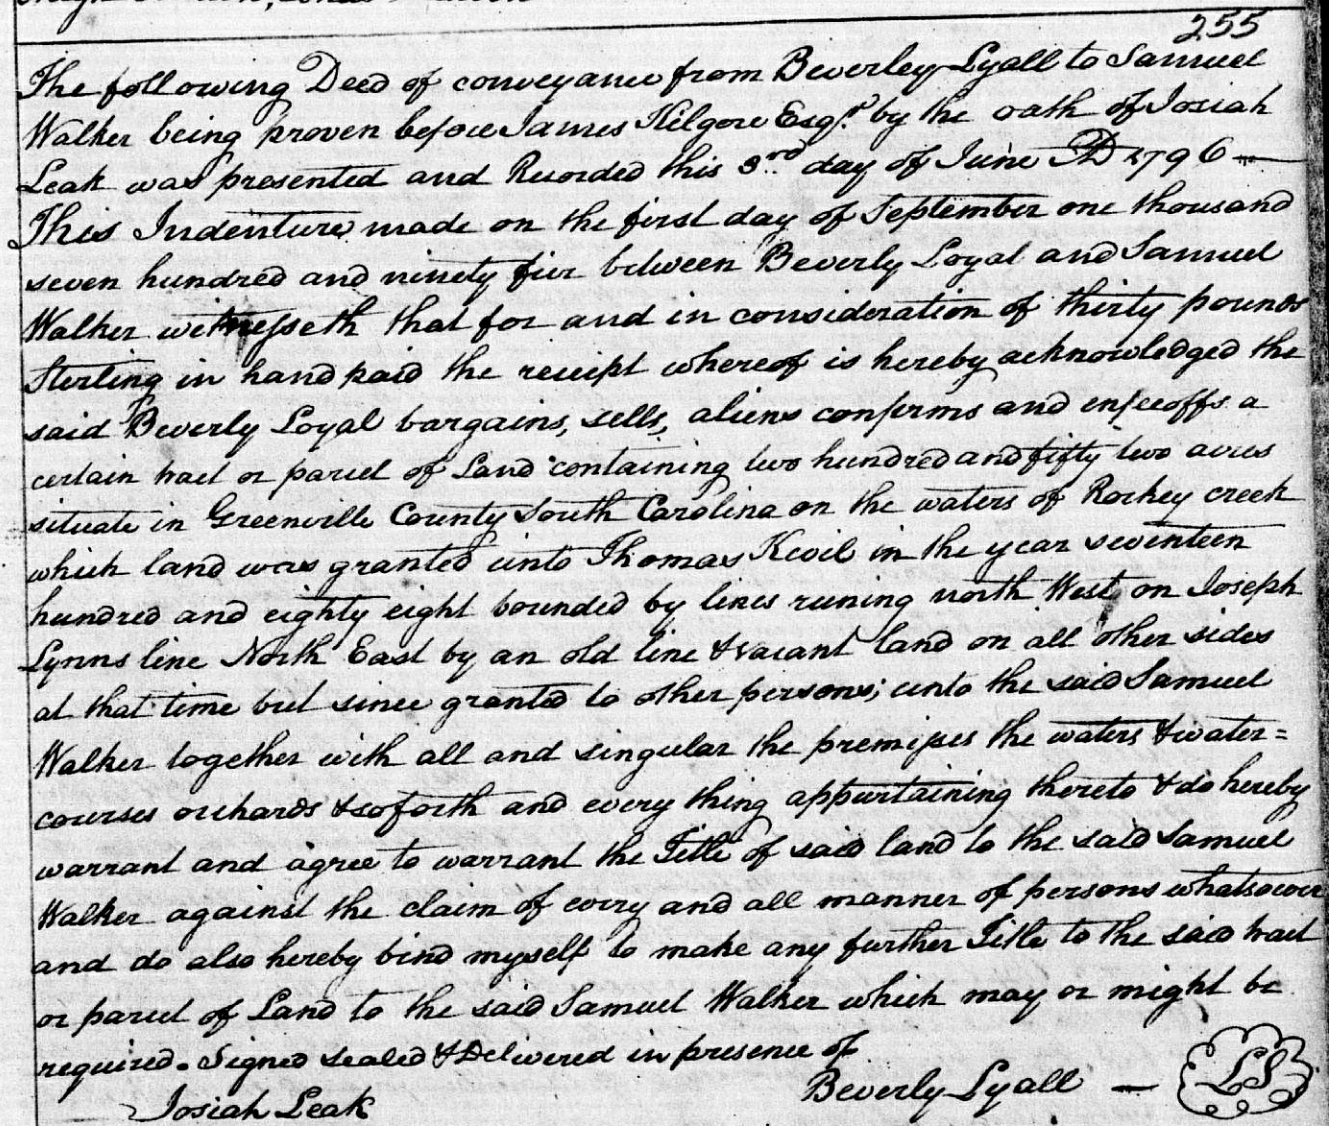 255
The following Deed of conveyance from Beverley Lyall to Samuel
Walker being proven before James Kilgore Esqr. by the oath of Josiah
Leak was presented and Recorded this 3rd day of June AD 1796 —
This Indenture made on the first day of September one thousand
seven hundred and ninety five between Beverly Loyal and Samuel
Walker witnesseth that for and in consideration of thirty pounds
Sterling in hand paid the receipt whereof is hereby acknowledged the
said Beverly Loyal bargains, sells, aliens confirms and enfeeoffs a
certain tract or parcel of Land containing two hundred and fifty two acres
situate in Greenville County South Carolina on the waters of Rockey creek
which land was granted unto Thomas Kevil in the year seventeen
hundred and eighty eight bounded by lines runing north West on Joseph
Lynns line North East by an old line & vacant land on all other sides
at that time but since granted to other persons; unto the said Samuel
Walker together with all and singular the premises the waters & water=
courses orchards & soforth and every thing appurtaining thereto & do hereby
warrant and agree to warrant the Title of said land to the said Samuel
Walker against the claim of every and all manner of persons whatsoever
and do also hereby bind myself to make any further Title to the said tract
or parcel of Land to the said Samuel Walker which may or might be
required. Signed sealed & Delivered in presence of
Beverly Lyall — LS
Josiah Leak